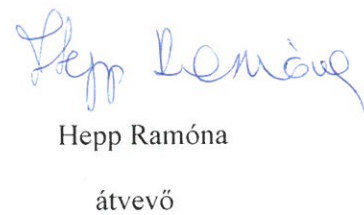 Hepp Ramóna
Hepp Ramóna
átvevő